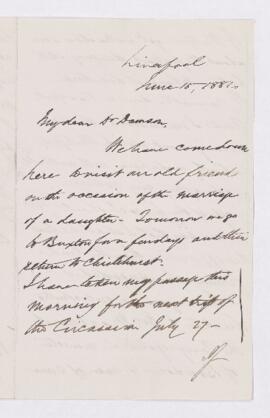 Liverpool
June 15, 1882.
My dear Dr Dawson,
We have come down
here to visit an old friend
on the occasion of the marriage
of a daughter - Tomorrow we go
to Buxton for a few days and then
return to Chislehurst.
I have taken my passage this
morning for the next trip of
the Circassian July 27 -
If